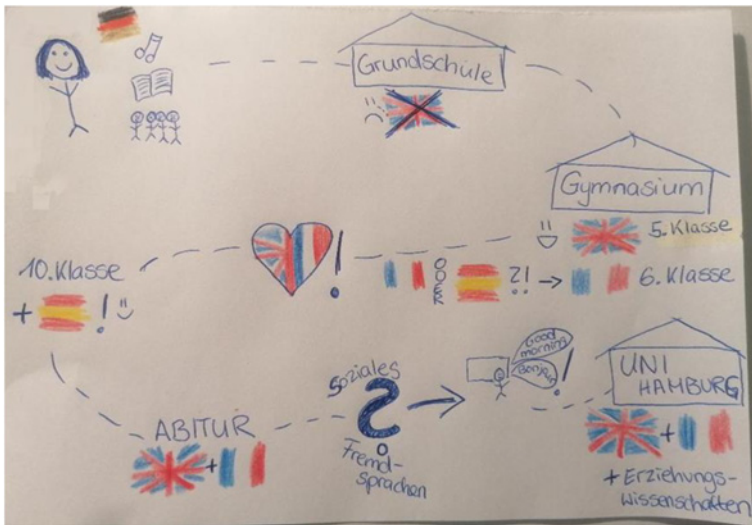 Grundschüle
Gymnasium
5. Klasse
ODER
?! →
6. Klasse
!
10. Klasse
+ !
ABITUR
+
Soziales
?
Fremd-
sprachen
Good
morning
Bonjour
!
UNI
HAMBURG
+
+ Erziehungs-
wissenschaften